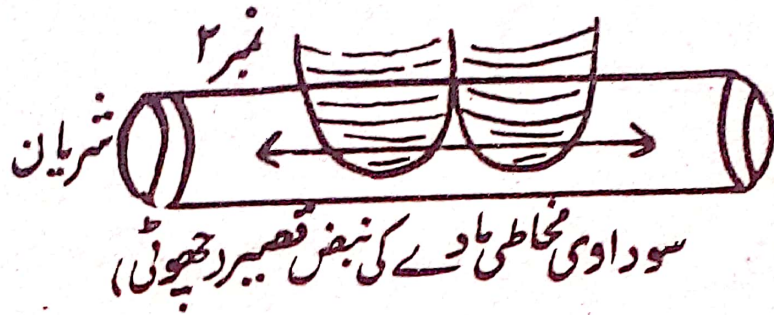 نمبر ۲
شریان
سوداوی مخاطی مادے کی نبض قصیر (چھوٹی)